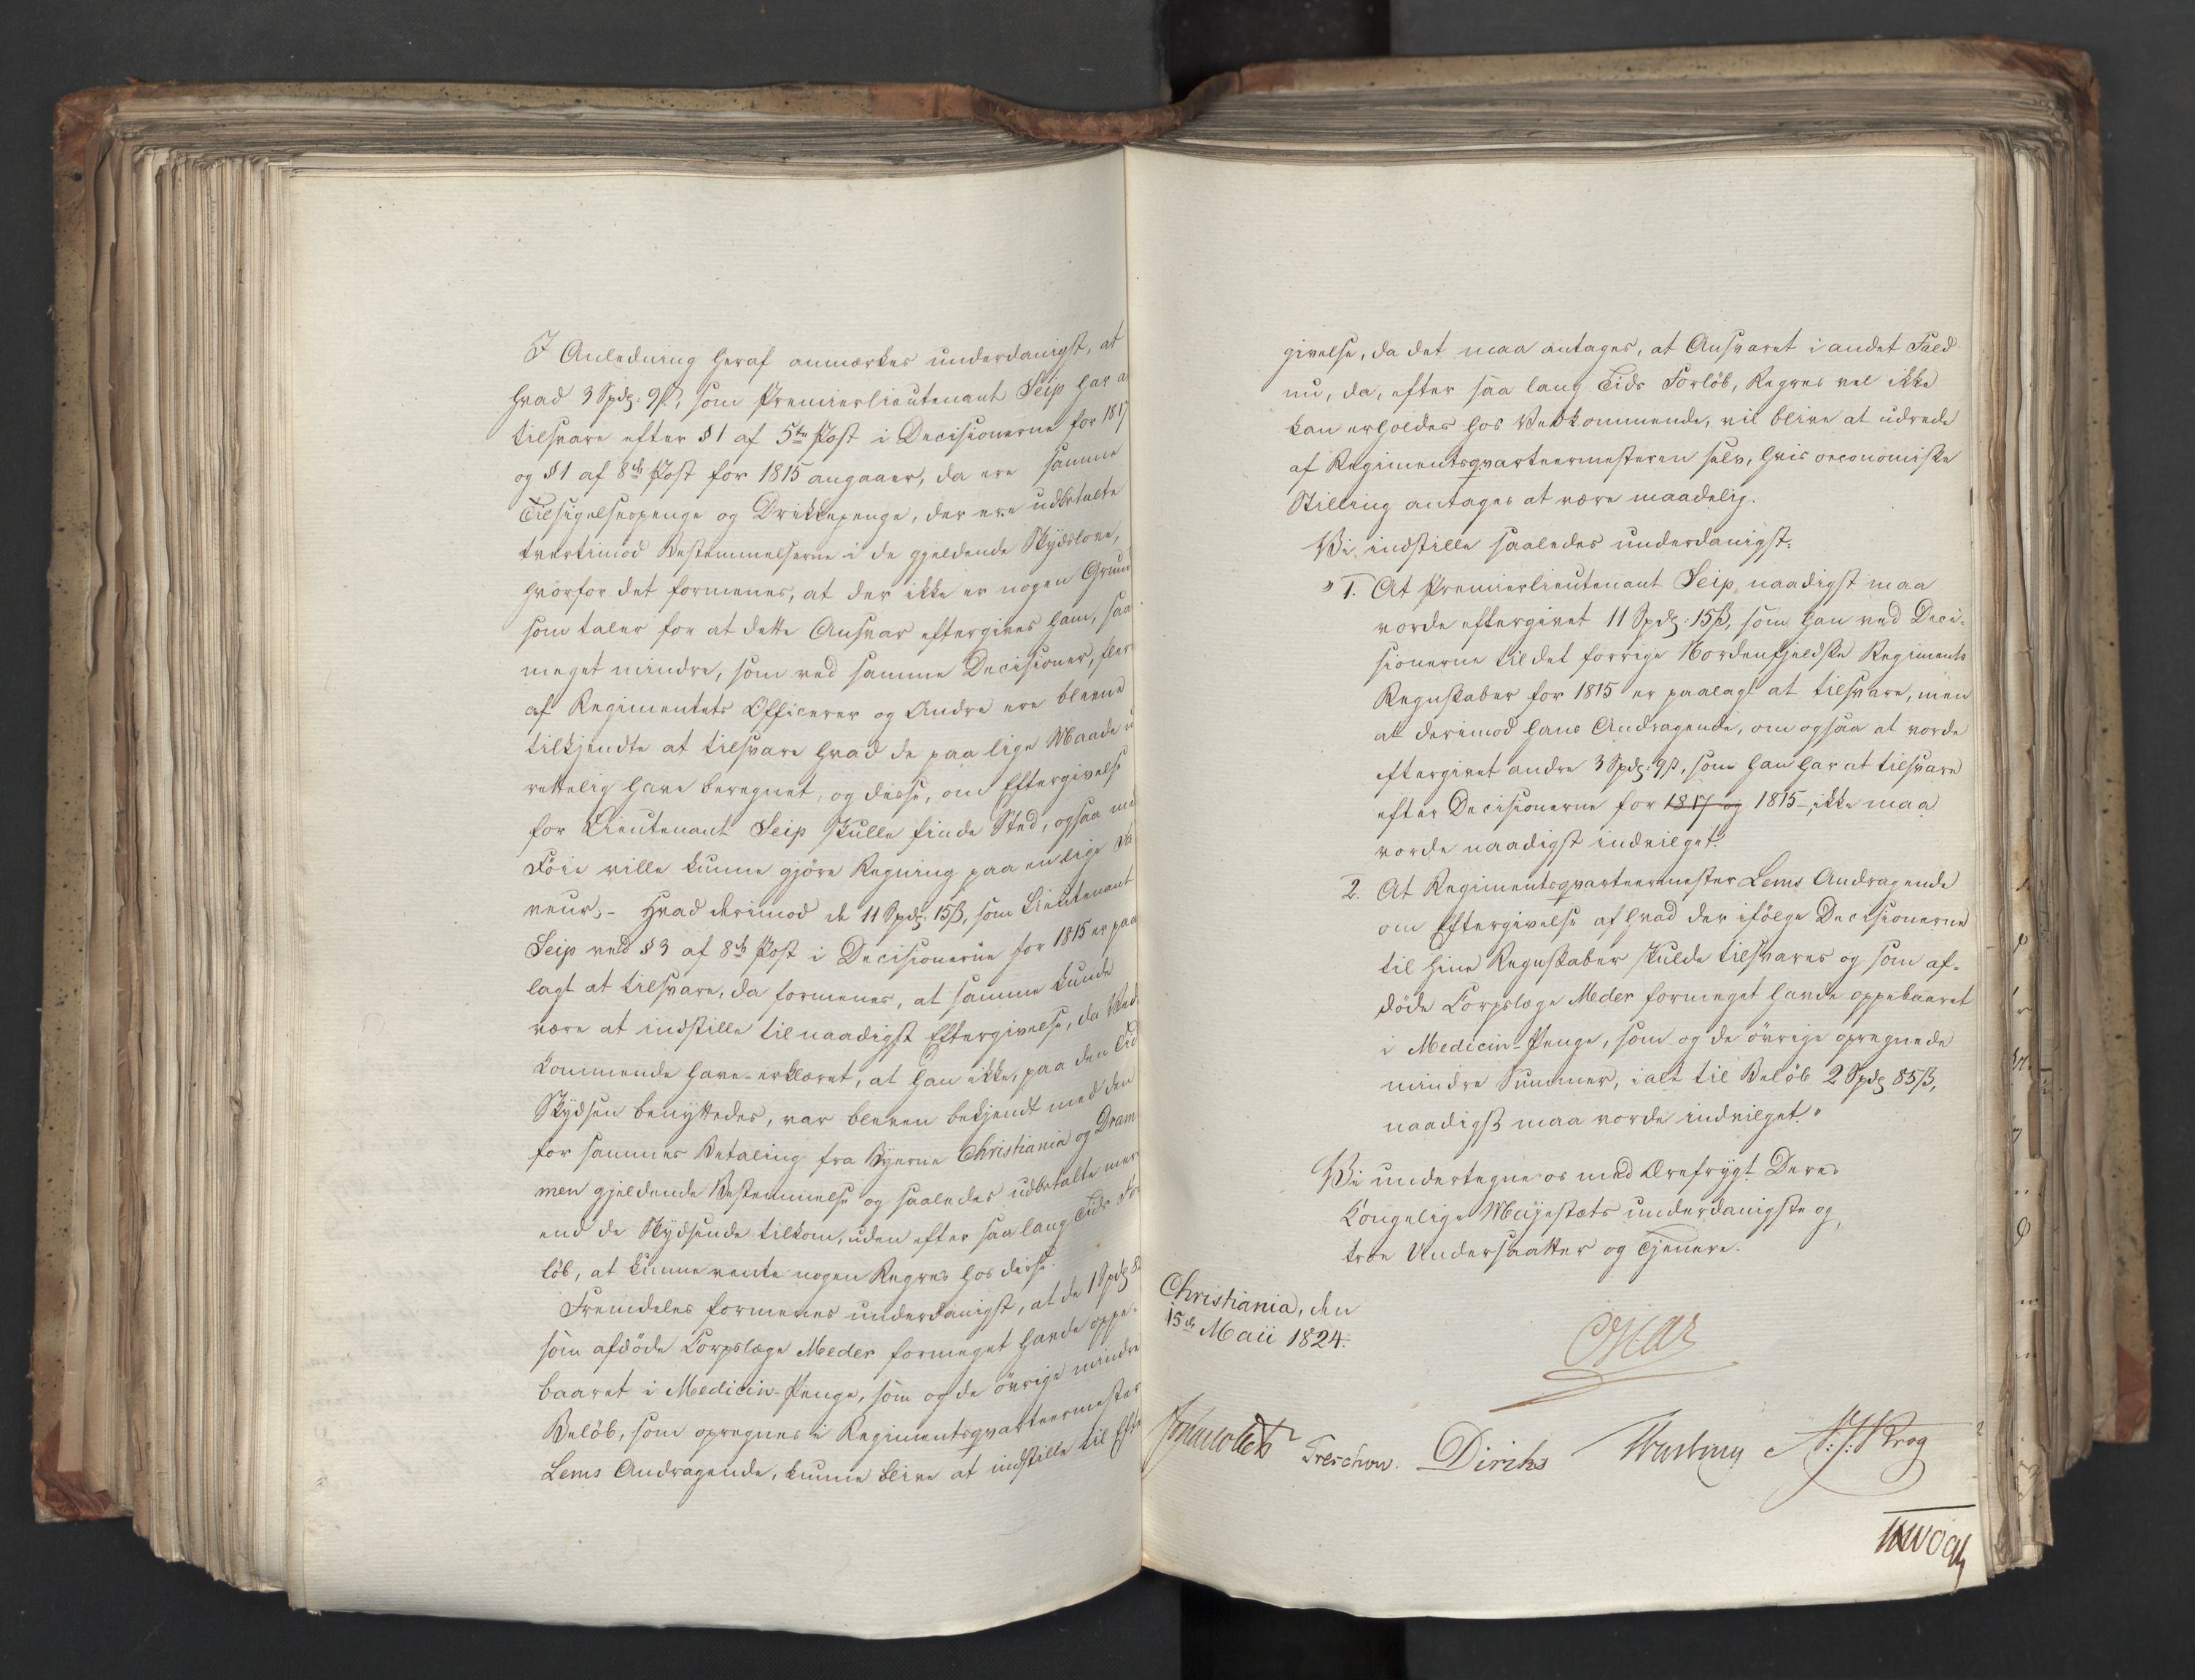 I Anledning heraf anmærkes underdanigst, at
hvad 3 Spd: 9ß, som Premierlieutenant Seip har a
tilsvare efter § 1 af 5te Post i Decisionerne for 1817
og § 1 af 8de Post for 1815 angaaer, da ere samme
Tilsigelsespenge og Drikkepenge, der ere udbetalte
tvertimod Bestemmelserne i de gjeldende Skydslove,
hvorfor det formenes, at der ikke er nogen Grund
som taler for at dette Ansvar eftergives ham, saa
meget mindre, som ved samme Decisioner, flere
af Regimentets Officerer og Andre ere blevne
tilkjendte at tilsvare hvad de paa lige Maade u
rettelig have beregnet, og disse, om Eftergivelse
for Lieutenant Seip skulle finde Sted, ogsaa med
Föie ville kunne gjöre Regning paa en lige Fa
veur; - Hvad derimod de 11 Spd: 15ß, som Lieutenant
Seip ved § 3 af 8de Post i Decisionerne for 1815 er paa
lagt at tilsvare, da formenes, at samme kunde
være at indstille til naadigst Eftergivelse, da Ved
kommende have erklæret, at han ikke, paa den Tid
Skydsen benyttedes, var bleven bekjendt med den
for sammes Betaling fra Byerne Christiania og Dram
men gjeldende Bestemmelse og saaledes udbetalte mer
end de Skydsende tilkom, uden efter saa lang Tids For
löb, at kunne vente nogen Regres hos disse.
Fremdeles formenes underdanigst, at de 1 Spd 8
som afdöde Corpslæge Meder formeget havde oppe-
baaret i Medicin-Penge, som og de övrige mindre
Belöb, som opregnes i Regimentsqvarteermester
Lems Andragende, kunne blive at indstille til Efter
givelse, da det maa antages, at Ansvaret i andet Fald
nu, da, efter saa lang Tids Forlöb, Regres vel ikke
kan erholdes hos Vedkommende, vil blive at udrede
af Regimentsqvarteermesteren selv, hvis oeconomiske
Stilling antages at være maadelig.
Vi indstille saaledes underdanigst:
"1. At Premierlieutenant Seip naadigst maa
vorde eftergivet 11 Spd: 15ß, som han ved Deci-
sionerne til det forrige Nordenfjeldske Regiments
Regnskaber for 1815 er paalagt at tilsvare, men
at derimod hans Andragende, om ogsaa at vorde
eftergivet andre 3 Spd: 9ß, som han har at tilsvare
efter Decisionerne for 1817 og 1815, ikke maa
vorde naadigst indvilget.
2. At Regimentsqvarteermester Lems Andragende
om Eftergivelse af hvad der ifölge Decisionerne
til hine Regnskaber skulde tilsvares og som af-
döde Corpslæge Meder formeget havde oppebaaret
i Medicin-Penge, som og de övrige opregnede
mindre Summer, ialt til Belöb 2 Spd 85ß,
naadigst maa vorde indvilget."
Vi undertegne os med Ærefrygt Deres
Kongelige Majestæts underdanigste og
troe Undersaatter og Tjenere.
Christiania, den
15de Maii 1824.
Oscar
Treschow. Dirichs N: J: Krog